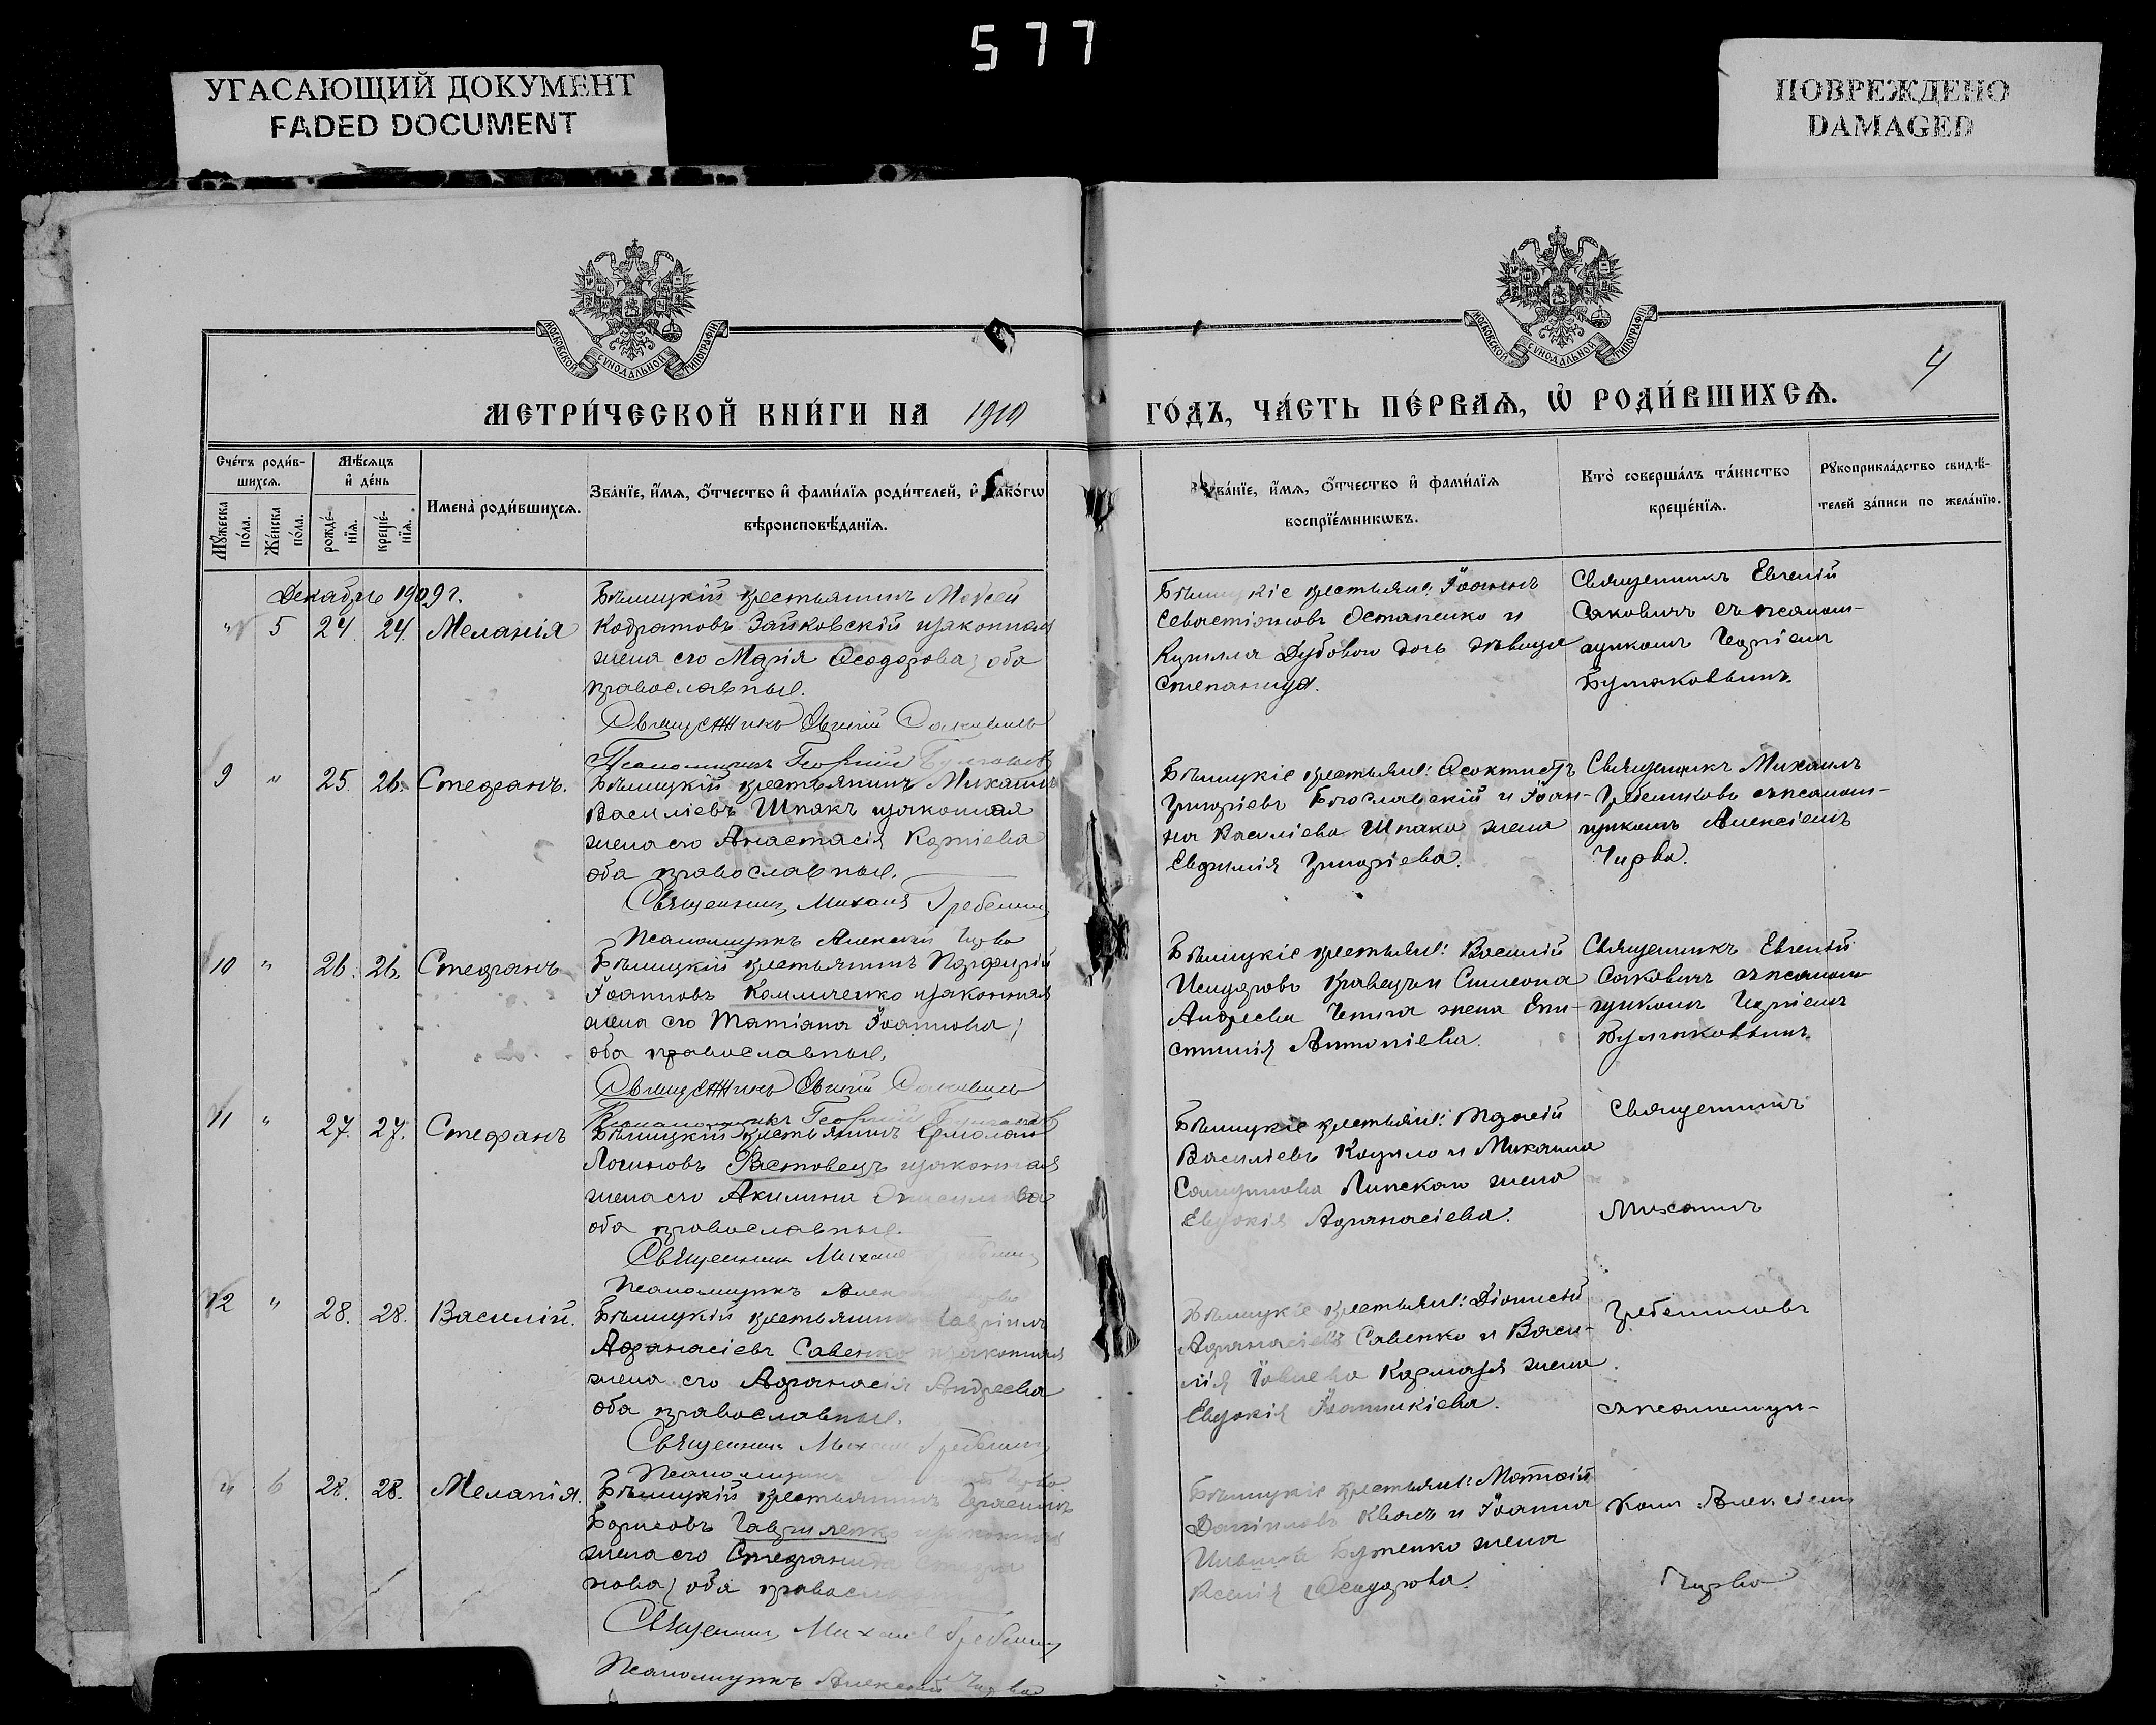 577
УГАСАЮЩИЙ ДОКУМЕНТ
FADED DOCUMENT
ПОВРЕЖДЕНО
DAMAGED
МОСКОВСКОЙ СѴНОДАЛЬНОЙ ТИПОГРАФІИ
МОСКОВСКОЙ СѴНОДАЛЬНОЙ ТИПОГРАФІИ
4
МЕТРИ́ЧЕСКОЙ КНИ́ГИ НА 1910
ГО́ДЪ, ЧА́СТЬ ПЕ́РВАЯ, Ѽ РОДИ́ВШИХСѦ.
Сче́тъ роди́в-
шихсѧ.
Мꙋ́жеска по́ла.
Же́нска по́ла.
Мѣ́сѧцъ
и҆ де́нь
рожде́-
нїѧ.
креще́-
нїѧ.
Имена̀ роди́вшихсѧ.
Зва́нїе, и҆́мѧ, ѻ҆́тчество и҆ фами́лїѧ роди́телей, и҆ како́гѡ
вѣроисповѣ́данїѧ.
Зва́нїе, и҆́мѧ, ѻ҆́тчество и҆ фами́лїѧ
воспрїе́мникѡвъ.
Кто̀ соверша́лъ та́инство
креще́нїѧ.
Рꙋкоприкла́дство свидѣ́-
телей за́писи по жела́нїю.
Декабрь 1909 г.
" 5 24 24. Меланія
Бѣлицкій крестьянинъ Моѵсей
Кодратовъ Зайковскій и законная
жена его Марія Ѳеодорова; оба
православные.
Священникъ Евгеній Сакович
Псаломщикъ Георгій
Бѣлицкіе крестьяне: Іоаннъ
Севастіановъ Остапенко и
Кирилла Дубового дочь дѣвица
Степанида.
Священникъ Евгеній
Саковичъ съ псалом-
щикомъ Георгіемъ
9 " 25. 26. Стефанъ.
Бѣлицкій крестьянинъ Михаилъ
Василіевъ Шпакъ и законная
жена его Анастасія
оба православные.
Священникъ Михаил
Псаломщикъ Алексій
Бѣлицкіе крестьяне: Ѳеоктистъ
Григоріевъ Богославскій и Іоан-
на Василіева Шпака жена
Евфимія Григоріева.
Священникъ Михаилъ
Гребенниковъ съ псалом-
щикомъ Алексіемъ
10 " 26. 26. Стефанъ
Бѣлицкій крестьянинъ Порфирій
Іоанновъ и законная
жена его Татіана Іоаннова;
оба православные.
Священникъ Евгеній Сакович
Псаломщикъ Георгій
Бѣлицкіе крестьяне: Василій
Исидоровъ Кравецъ и Симеона
Андреева жена Епи-
стимія Антоніева.
Священникъ Евгеній
Саковичъ съ псалом-
щикомъ Георгіемъ
11 " 27. 27. Стефанъ
Бѣлицкій крестьянинъ Ермолай
Логиновъ Растовецъ и законная
жена его Акилина
оба православные.
Священник Михаил
Псаломщикъ Алексій
Бѣлицкіе крестьяне:
Василіевъ и Михаила
жена
Евдокія Аѳанасіева.
Священникъ
Михаилъ
12 " 28. 28. Василій.
Бѣлицкій крестьянинъ Гавріилъ
Аѳанасіевъ Савенко и законная
жена его Аѳанасія Андреева
оба православные.
Священник Михаил
Псаломщикъ
Бѣлицкіе крестьяне: Діонисій
Аѳанасіевъ Савенко и Васи-
лія жена
Евдокія Іоанникіева.
Гребенниковъ
съ псаломщи-
" 6 28. 28. Меланія.
Бѣлицкій крестьянинъ Герасимъ
Борисовъ Гавриленко и законная
жена его Стефанида
нова; оба православные
Священник Михаил
Псаломщикъ Алексій
Бѣлицкіе крестьяне: Матѳей
Даніиловъ Квачъ и Іоанна
Бутенко жена
Ксенія Ѳеодорова.
комъ Алексіемъ